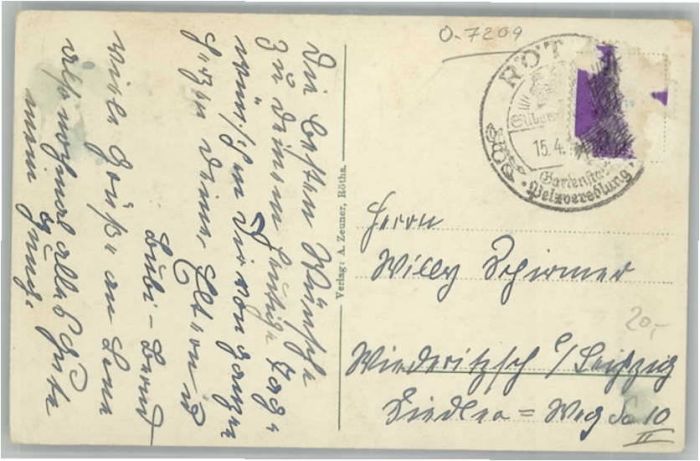 Die besten Wünsche
zu deinem heutigen Tag
wünschen Dir von ganzem
Herzen deine Eltern u.
Bubi - Bernd
viele Grüße an Lena
also nochmal alles Gute
mein Junge.
Verlag: A. Zeuner, Rötha.
O-7209
RÖT
15.4.
Gartenstadt
Pelzveredlung
Herrn
Willy Schirmer
Wiederitzsch b/Leipzig
Siedler = Weg 10
II
20,-